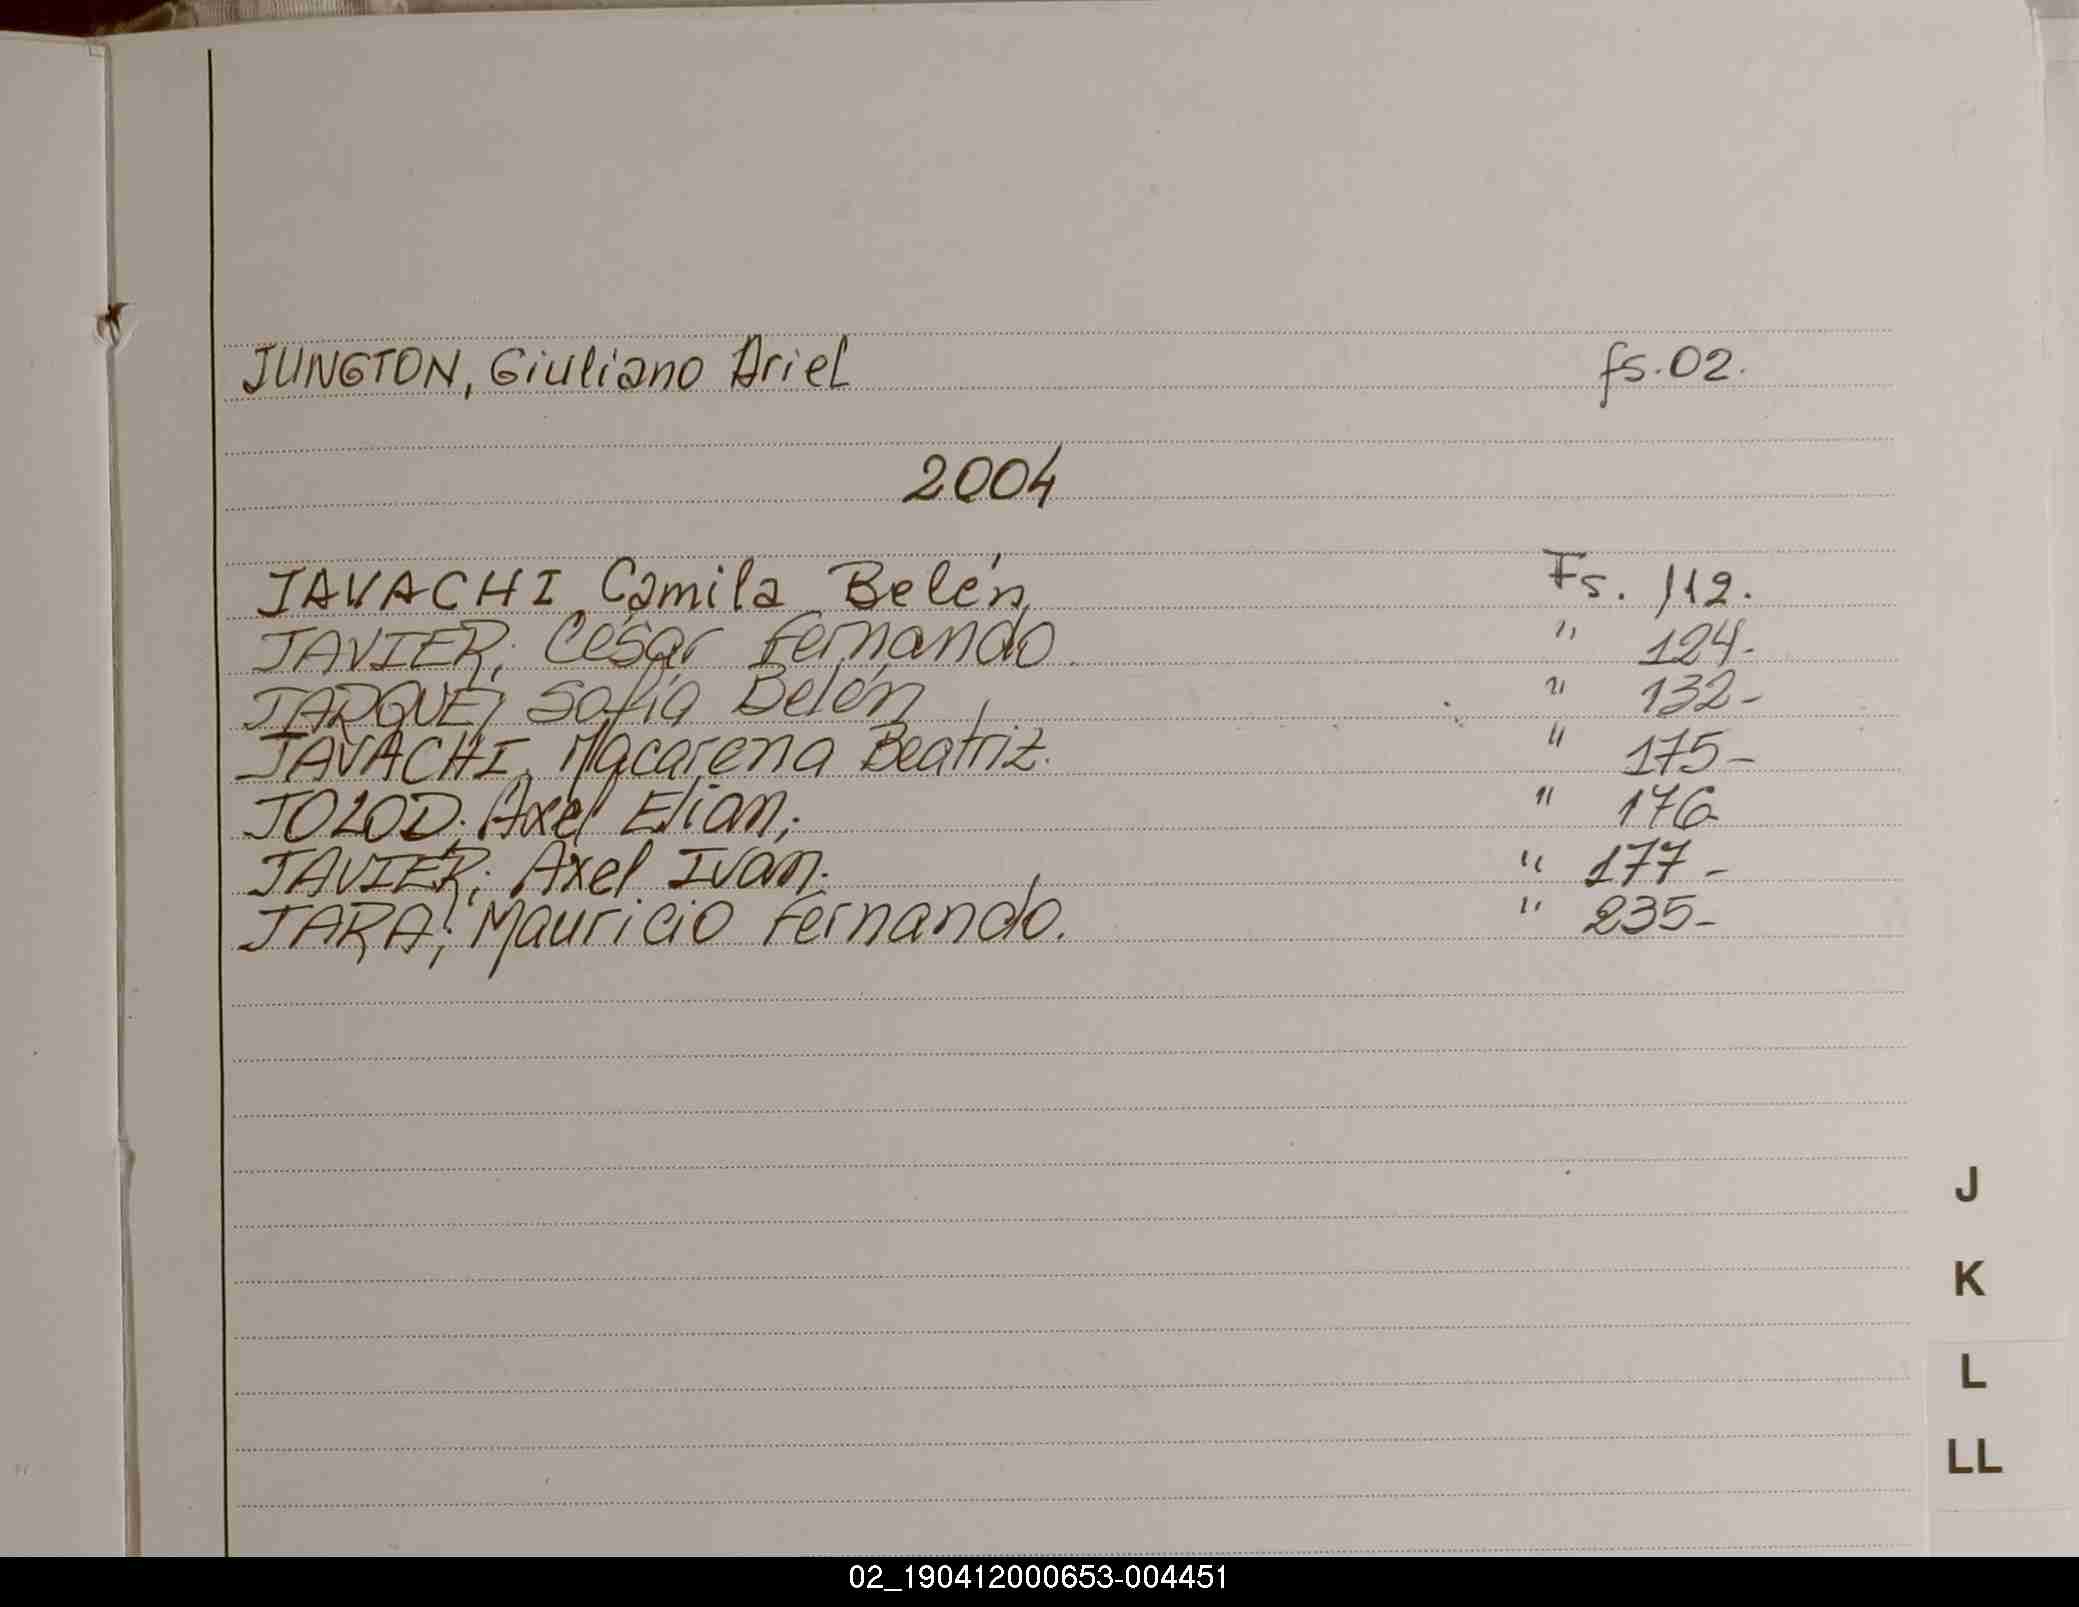 JUNGTON, Giuliano Ariel fs. 02.
2004
JAVACHI, Camila Belén, Fs. 112.
JAVIER; César Fernando " 124-
JARQUE; Sofia Belén " 132-
JAVACHI, Macarena Beatriz. " 175-
JOLOD. Axel Elian; " 176
JAVIER; Axel Ivan. " 177-
JARA; Mauricio Fernando. " 235-
J
K
L
LL
02_190412000653-004451